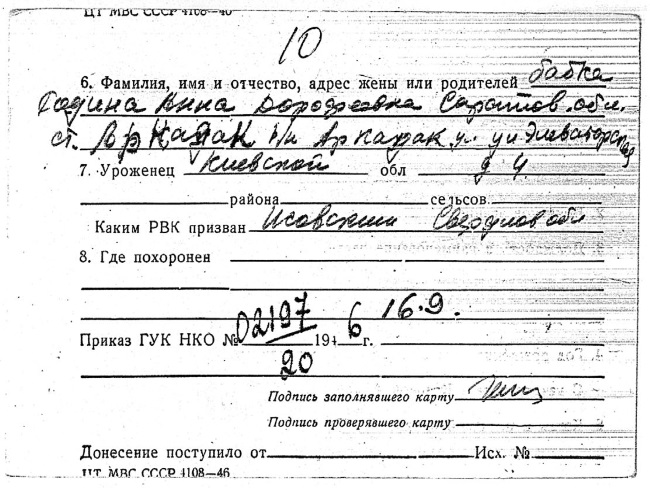 ЦТ МВС СССР 4108—46
10
6. Фамилия, имя и отчество, адрес жены или родителей бабка
Анна Дорофеевна Саратов. обл.
ст. Аркадак п/и Аркадак ул.
7. Уроженец Киевской обл д 4
района сельсов.
Каким РВК призван Исовский Свердлов обл
8. Где похоронен
16.9.
Приказ ГУК НКО № 02197 1946 г.
20
Подпись заполнявшего карту
Подпись проверявшего карту
Донесение поступило от Исх. №
ЦТ МВС СССР 4108—46